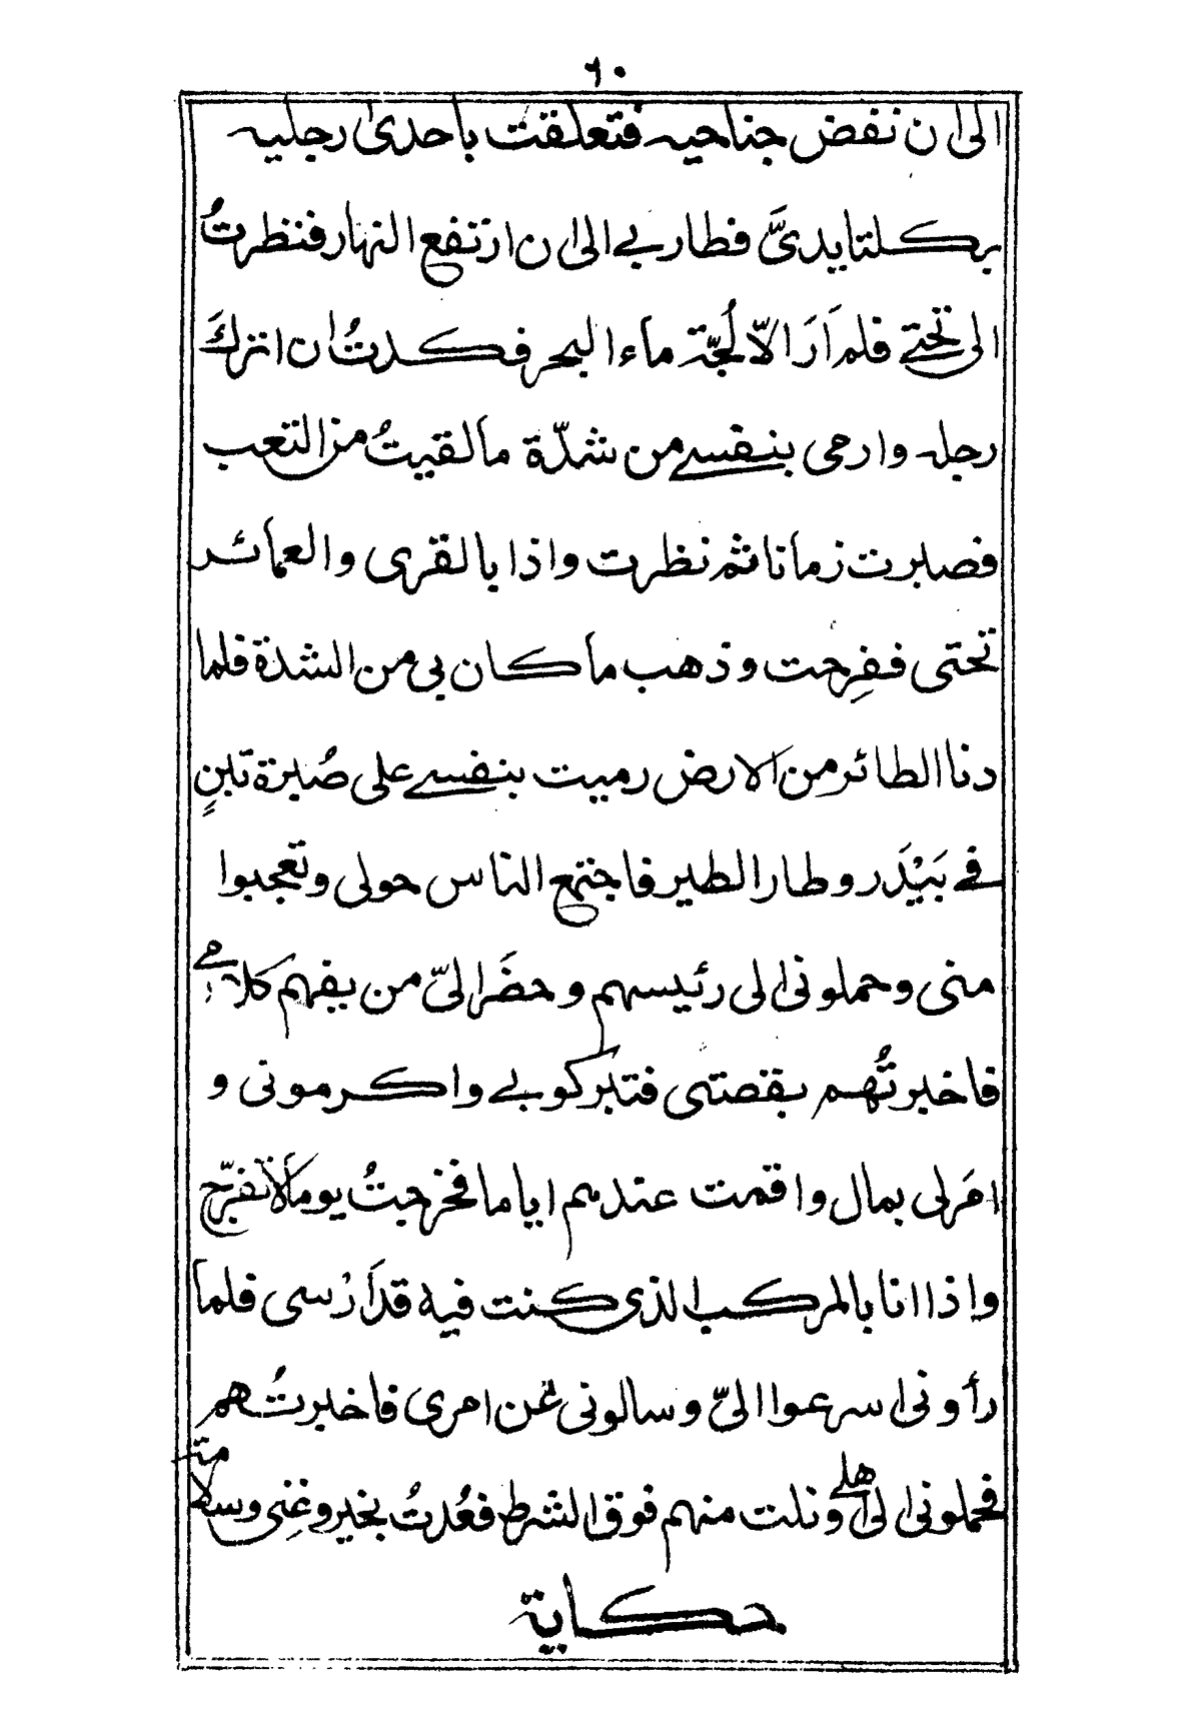 ٦٠
الى ان نفض جناحيه فتعلقت باحدى رجليه
بكلتا يديَّ فطار بي الى ان ارتفع النهار فنظرتُ
الى تحتي فلم اَرَ الّا لُجّة ماء البحر فكدتُ ان اترك
رجله وارمى بنفسي من شدّة ما لقيتُ من التعب
فصبرت زمانا ثم نظرت واذا بالقرى والعمائر
تحتى ففرِحت وذهب ما كان بى من الشدة فلما
دنا الطائر من الارض رميت بنفسي على صُبرة تبنٍ
في بَيْدَر وطار الطير فاجتمع الناس حولى وتعجبوا
منى وحملونى الى رئيسهم وحضَر الىّ من يفهم كلامي
فاخبرتُهم بقصتى فتبركوا بي واكرمونى و
امَر لى بمال واقمت عندهم اياما فخرجتُ يوما لاتفرّج
واذا انا بالمركب الذى كنت فيه قد اَرْسى فلما
رأونى اسرعوا الىّ وسالونى عن امرى فاخبرتُهم
فحملونى الى اهلي ونلت منهم فوق الشرط فعُدتُ بخير وغِنى وسلامة
حكاية